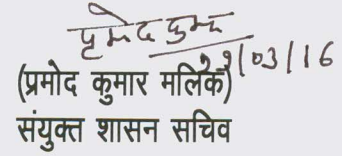 प्रमोद कुमार
29/03/16
(प्रमोद कुमार मलिक)
संयुक्त शासन सचिव